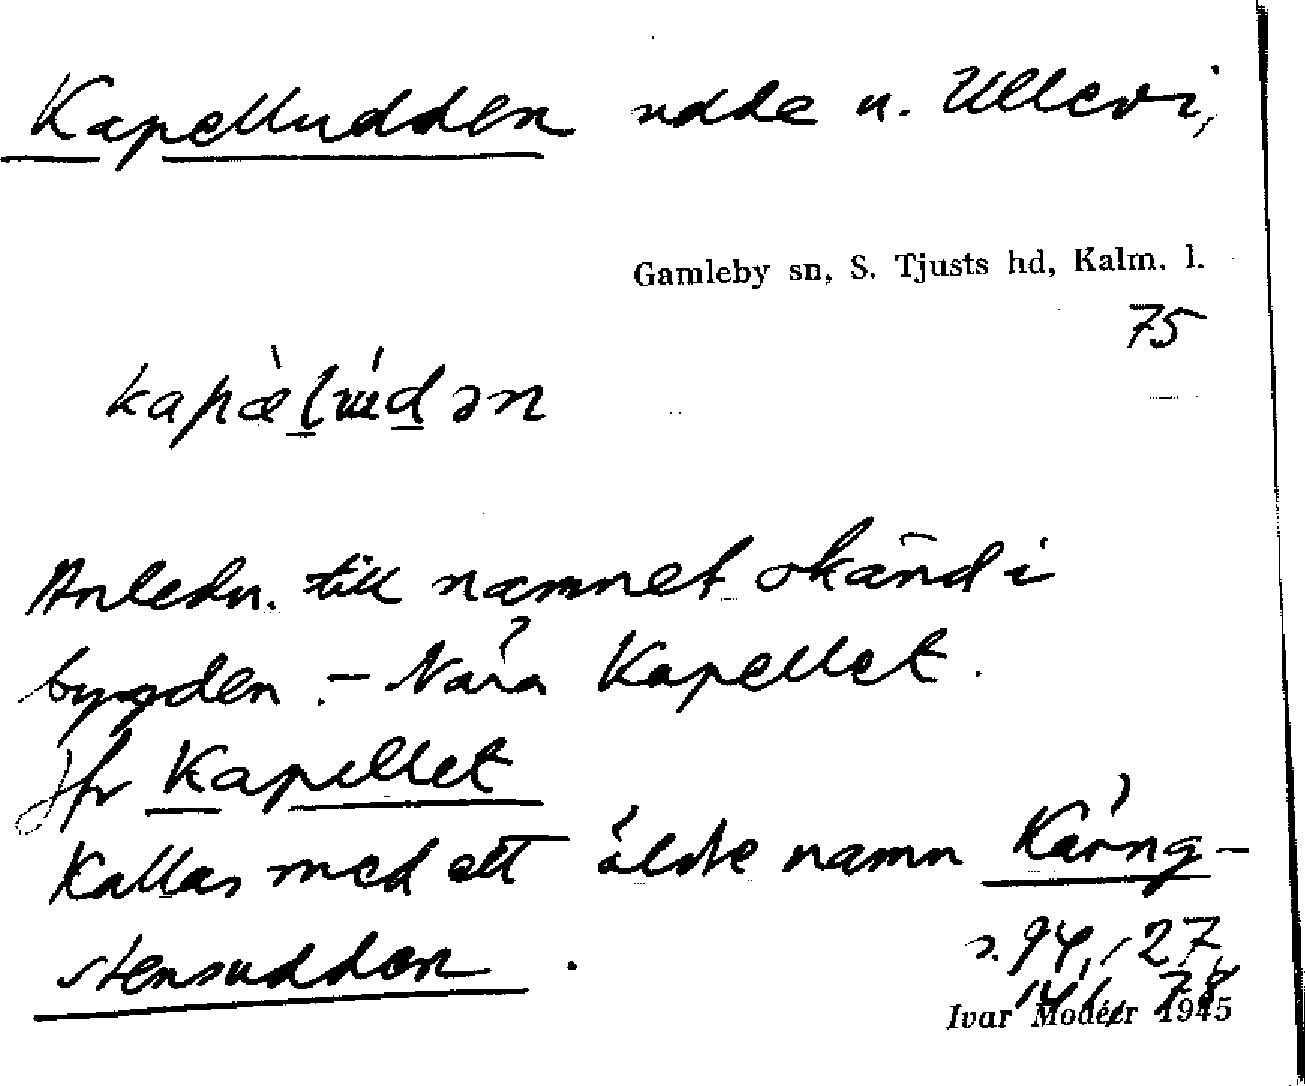 Kapelludden udde n. Ullevi,
Gamleby sn, S. Tjusts hd, Kalm. l.
75
kapæ̀lúdən
Anledn. till namnet okänd i
bygden. – Nära Kapellet.
Jfr Kapellet
Kallas med ett äldre namn Käring-
stensudden.
s. 94, 27,
141, 78
Ivar Modéer 1945